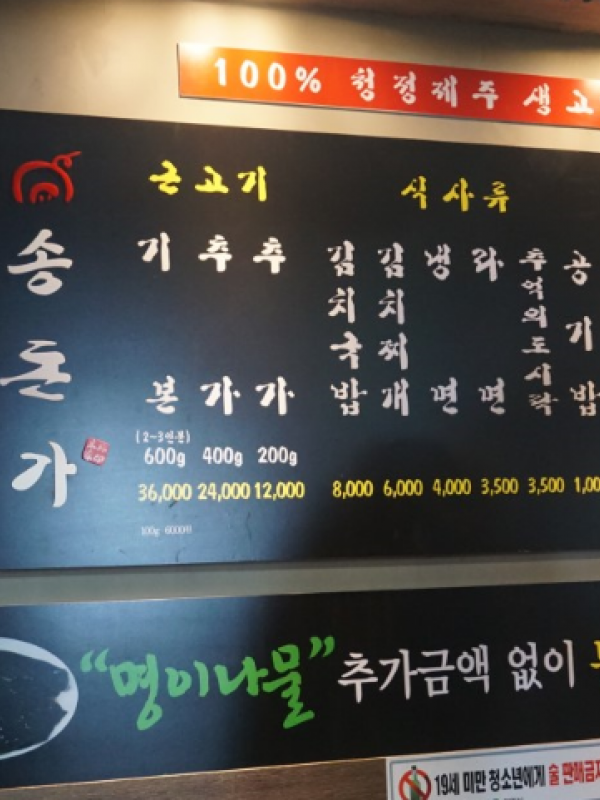 100% 청정제주 생고
송돈가
근고기
기본
추가
추가
(2~3인분)
600g 400g 200g
36,000 24,000 12,000
100g 6000원
식사류
김치국밥
김치찌개
냉면
라면
추억의도시락
공기밥
8,000 6,000 4,000 3,500 3,500 1,00
"명이나물" 추가금액 없이
19세 미만 청소년에게 술 판매금지